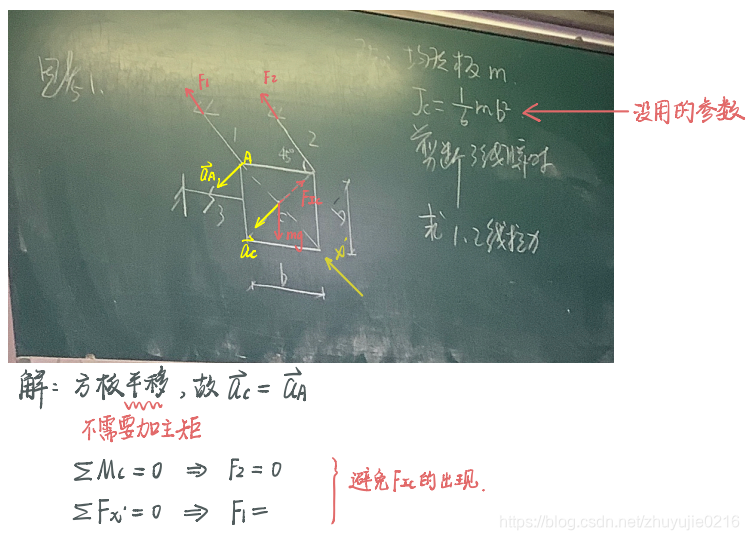 思考1.
均质板 m.
J_C = 1/6 mb²
没用的参数
剪断3线瞬时
求 1.2线拉力
F₁
F₂
1
2
45°
A
a⃗_A
3
C
mg
a⃗c
x'
b
b
解：方板平移，故 a⃗c = a⃗A
不需要加主矩
ΣMc = 0 ⇒ F₂ = 0
ΣFx' = 0 ⇒ F₁ =
避免F_Ic的出现.
https://blog.csdn.net/zhuyujie0216